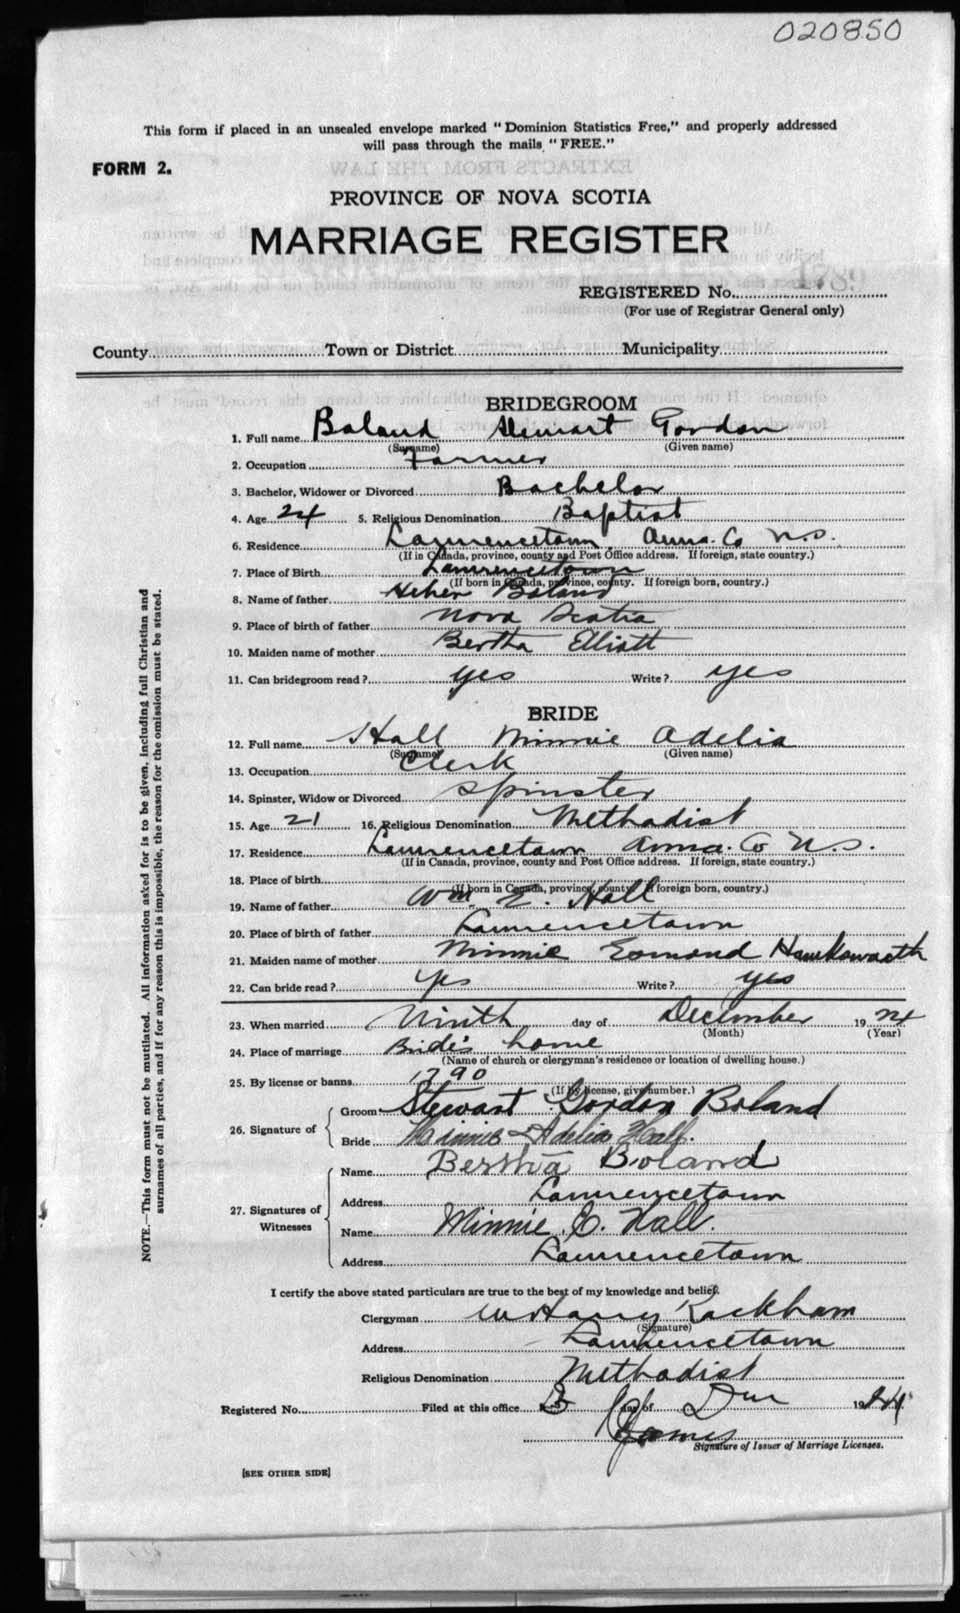 020850
This form if placed in an unsealed envelope marked "Dominion Statistics Free," and properly addressed
will pass through the mails "FREE."
FORM 2.
PROVINCE OF NOVA SCOTIA
MARRIAGE REGISTER
REGISTERED No. 1789
(For use of Registrar General only)
County Town or District Municipality
BRIDEGROOM
1. Full name Boland Stewart Gordon
(Surname) (Given name)
2. Occupation Farmer
3. Bachelor, Widower or Divorced Bachelor
4. Age 24 5. Religious Denomination Baptist
6. Residence Lawrencetown Anna. Co N.S.
(If in Canada, province, county and Post Office address. If foreign, state country.)
7. Place of Birth Lawrencetown
(If born in Canada, province, county. If foreign born, country.)
8. Name of father Heber Boland
9. Place of birth of father Nova Scotia
10. Maiden name of mother Bertha Elliott
11. Can bridegroom read? yes Write? yes
BRIDE
12. Full name Hall Minnie Adelia
(Surname) (Given name)
13. Occupation Clerk
14. Spinster, Widow or Divorced Spinster
15. Age 21 16. Religious Denomination Methodist
17. Residence Lawrencetown Anna. Co N.S.
(If in Canada, province, county and Post Office address. If foreign, state country.)
18. Place of birth
(If born in Canada, province, county. If foreign born, country.)
19. Name of father Wm. E. Hall
20. Place of birth of father Lawrencetown
21. Maiden name of mother Minnie Esmond Hawksworth
22. Can bride read? yes Write? yes
23. When married Ninth day of December 1924
(Month) (Year)
24. Place of marriage Bride's home
(Name of church or clergyman's residence or location of dwelling house.)
25. By license or banns 1790
(If by license, give number.)
26. Signature of Groom Stewart Gordon Boland
Bride Minnie Adelia Hall.
27. Signatures of Witnesses Name Bertha Boland
Address Lawrencetown
Name Minnie E. Hall.
Address Lawrencetown
I certify the above stated particulars are true to the best of my knowledge and belief.
Clergyman W Harry Rackham
(Signature)
Address Lawrencetown
Religious Denomination Methodist
Registered No. Filed at this office day of 1924
Signature of Issuer of Marriage Licenses.
[SEE OTHER SIDE]
NOTE.—This form must not be mutilated. All information asked for is to be given, including full Christian and
surnames of all parties, and if for any reason this is impossible, the reason for the omission must be stated.